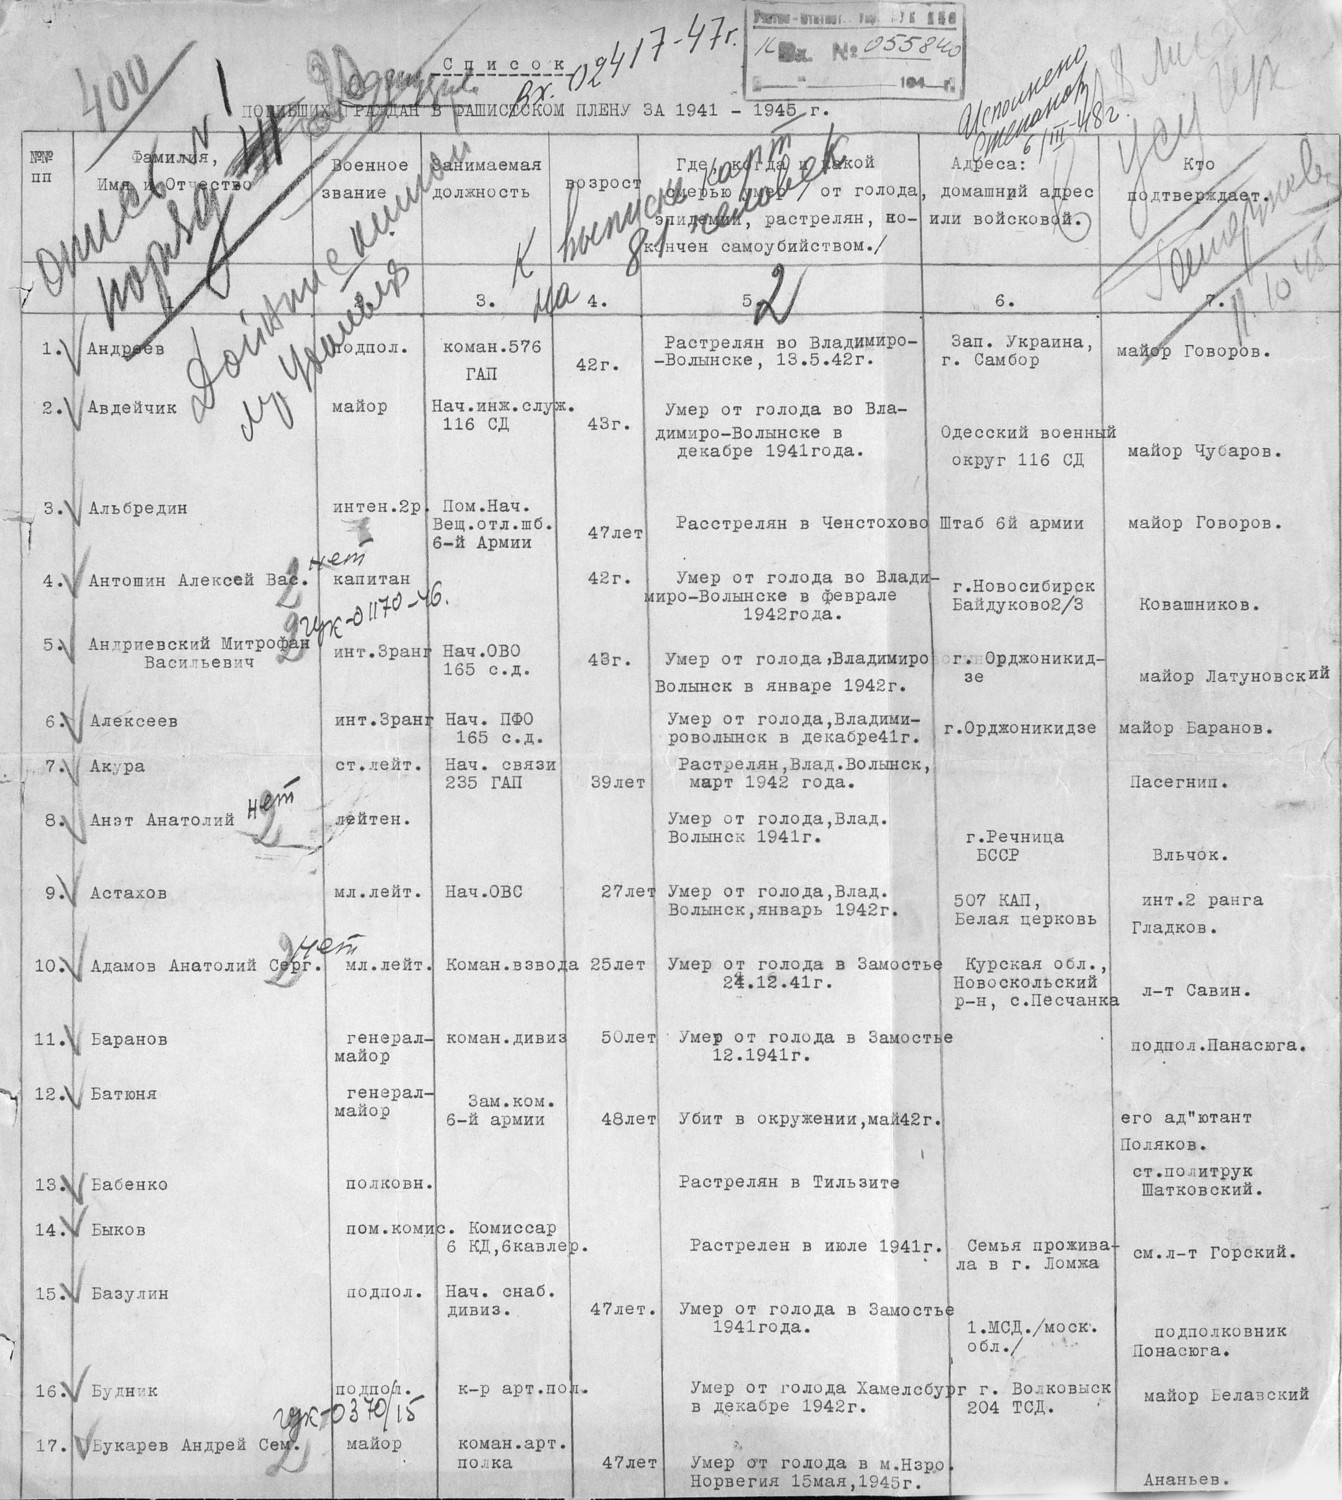 400
Список
вх. 02417-47г.
Вх. № 055840
194 г.
Исполнено
6/III-48г.
ПОГИБШИХ ГРАЖДАН В ФАШИСТСКОМ ПЛЕНУ ЗА 1941 - 1945 г.
№№ пп
Фамилия, Имя и Отчество
Военное звание
Занимаемая должность
возрост
Где, когда и какой смерью умер / от голода, эпидемии, растрелян, по-кончен самоубийством./
Адреса: домашний адрес или войсковой.
Кто подтверждает.
К выписки карт
на 81 человек
11.10.45
3. 4. 5. 6. 7.
2
1. Андреев подпол. коман.576 ГАП 42г. Растрелян во Владимиро--Волынске, 13.5.42г. Зап. Украина, г. Самбор майор Говоров.
2. Авдейчик майор Нач.инж.служ. 116 СД 43г. Умер от голода во Вла-димиро-Волынске в декабре 1941года. Одесский военный округ 116 СД майор Чубаров.
3. Альбредин интен.2р. Пом.Нач. Вещ.отл.шб. 6-й Армии 47лет Расстрелян в Ченстохово Штаб 6й армии майор Говоров.
нет
4. Антошин Алексей Вас. капитан 42г. Умер от голода во Влади-миро-Волынске в феврале 1942года. г.Новосибирск Байдуково2/3 Ковашников.
2
гук-01170-46.
5. Андриевский Митрофан Васильевич инт.3ранг Нач.ОВО 165 с.д. 43г. Умер от голода,Владимиро Волынск в январе 1942г. г. Орджоникид-зе майор Латуновский
2
6. Алексеев инт.3ранг Нач. ПФО 165 с.д. Умер от голода,Владими-роволынск в декабре41г. г.Орджоникидзе майор Баранов.
7. Акура ст.лейт. Нач. связи 235 ГАП 39лет Растрелян,Влад.Волынск, март 1942 года. Пасегнип.
нет
8. Анэт Анатолий лейтен. Умер от голода,Влад. Волынск 1941г. г.Речница БССР Вльчок.
2
9. Астахов мл.лейт. Нач.ОВС 27лет Умер от голода,Влад. Волынск,январь 1942г. 507 КАП, Белая церковь инт.2 ранга Гладков.
нет
10. Адамов Анатолий Серг. мл.лейт. Коман.взвода 25лет Умер от голода в Замостье 24.12.41г. Курская обл., Новоскольский р-н, с.Песчанка л-т Савин.
2
11. Баранов генерал-майор коман.дивиз 50лет Умер от голода в Замостье 12.1941г. подпол.Панасюга.
12. Батюня генерал-майор Зам.ком. 6-й армии 48лет Убит в окружении,май42г. его ад"ютант Поляков.
13. Бабенко полковн. Растрелян в Тильзите ст.политрук Шатковский.
14. Быков пом.комис. Комиссар 6 КД,6кавлер. Растрелен в июле 1941г. Семья прожива-ла в г. Ломжа см.л-т Горский.
15. Базулин подпол. Нач. снаб. дивиз. 47лет. Умер от голода в Замостье 1941года. 1.МСД./моск. обл./ подполковник Понасюга.
16. Будник подпол. к-р арт.пол. Умер от голода Хамелсбург в декабре 1942г. г. Волковыск 204 ТСД. майор Белавский
гук-0370/15
17. Букарев Андрей Сем. майор коман.арт. полка 47лет Умер от голода в м.Нзро. Норвегия 15мая,1945г. Ананьев.
2